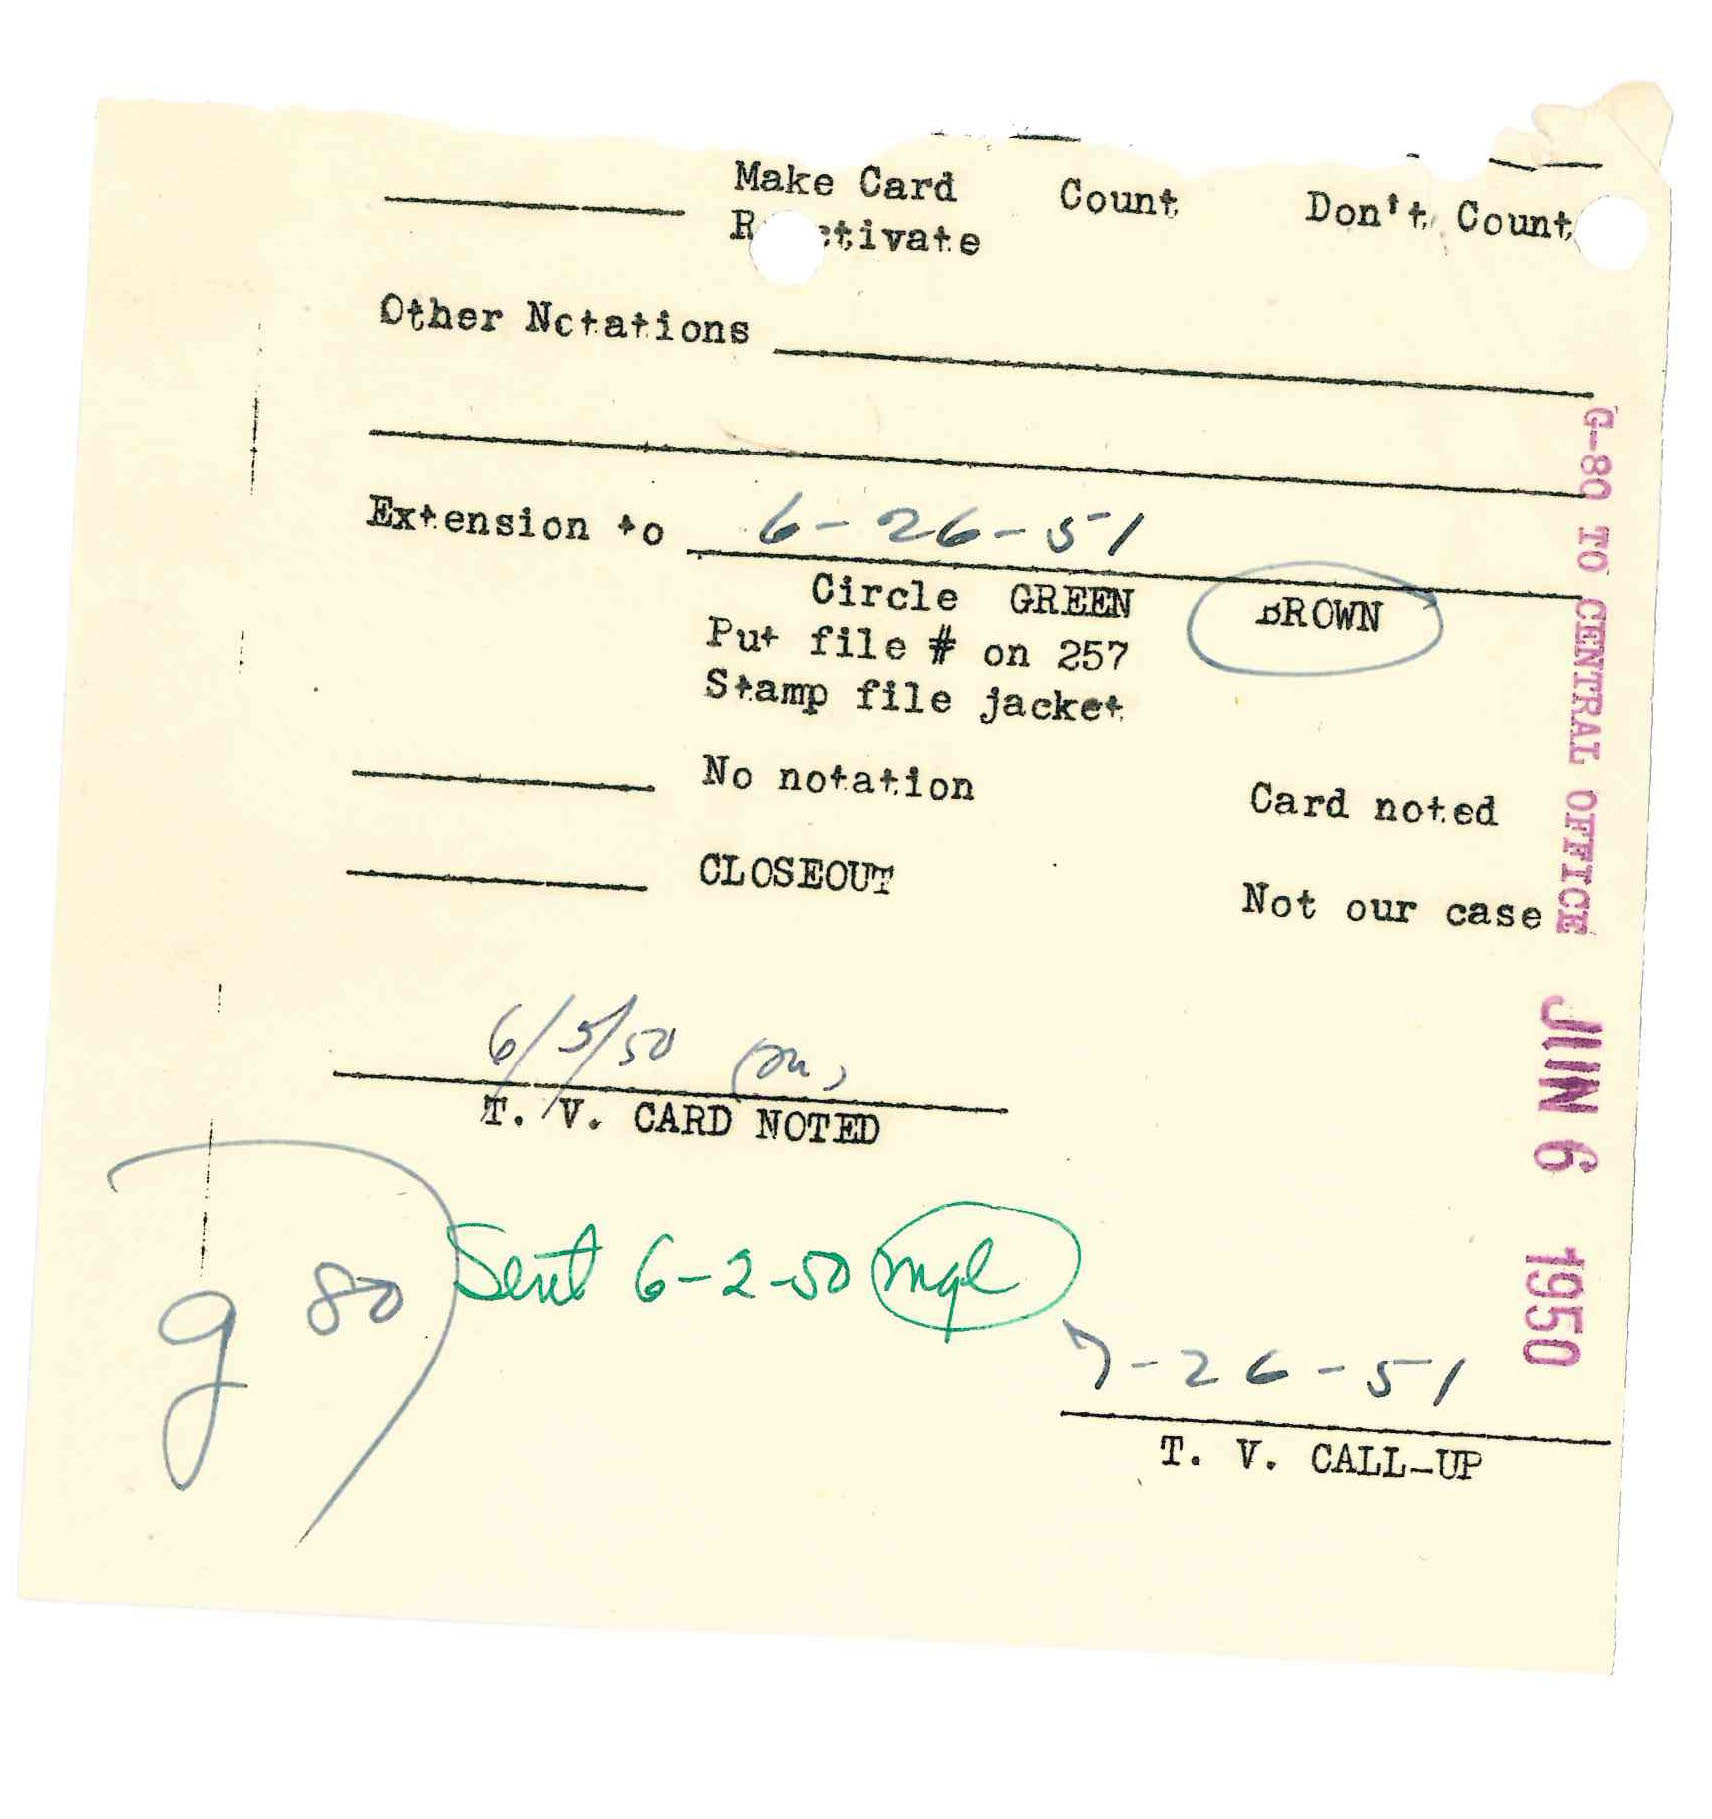 Make Card Count Don't Count
Reactivate
Other Notations
Extension to 6-26-51
Circle GREEN BROWN
Put file # on 257
Stamp file jacket
No notation Card noted
CLOSEOUT Not our case
6/5/50
T. V. CARD NOTED
g 80
Sent 6-2-50 mgl
7-26-51
T. V. CALL-UP
G-80 TO CENTRAL OFFICE JUN 6 1950